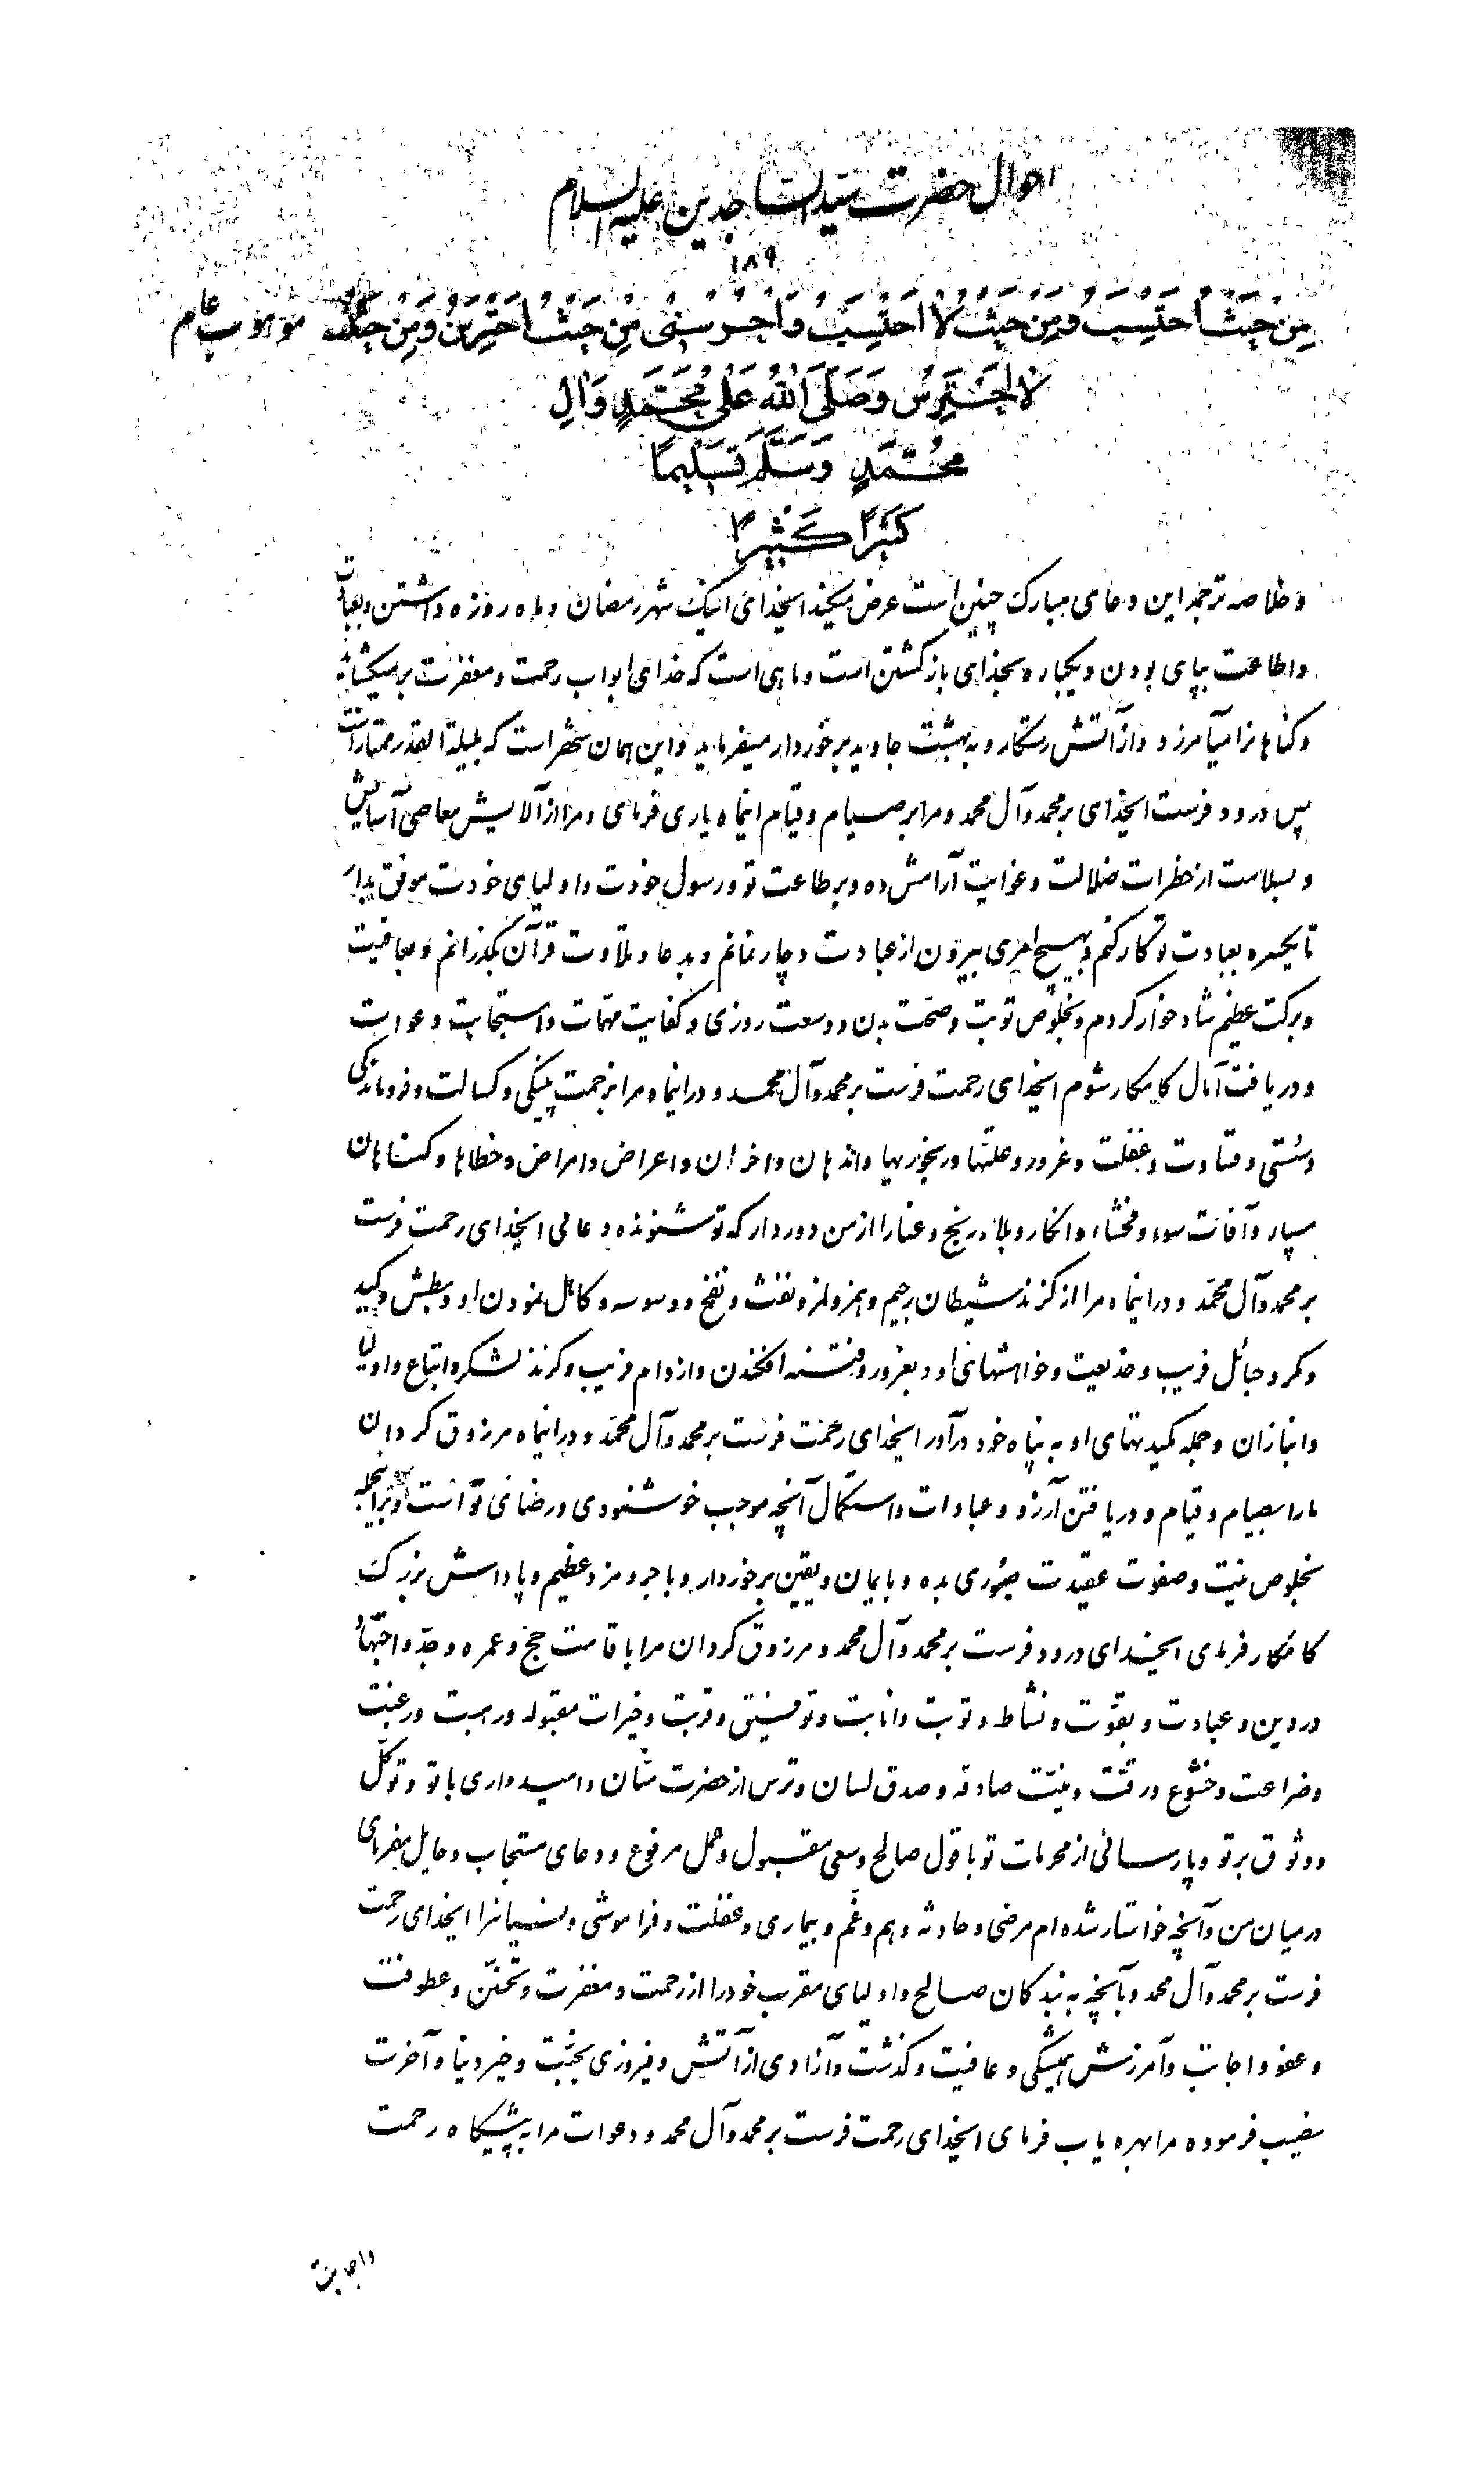 احوال حضرت سیّد السّاجدین علیه السلام
۱۸۹
مِنْ حَیْثُ اَحْتَسِبُ وَمِنْ حَیْثُ لا اَحْتَسِبُ وَاحْرُسْنی مِنْ حَیْثُ اَحْتَرِسُ وَمِنْ حَیْثُ
لا اَحْتَرِسُ وَصَلَّی اللهُ عَلی مُحَمَّدٍ وَالِ
مُحَمَّدٍ وَسَلَّمَ تَسْلیمًا
کَثیرًا کَثیرًا
و خلاصه ترجمه این دعای مبارک چنین است عرض میکند ایخدای اینک شهر رمضان و ماه روزه داشتن و بعبادت
و اطاعت بپای بودن و یکباره بخدای بازگشتن است و ماهی است که خدای ابواب رحمت و مغفرت بر میگشاید
و گناهانرا میآمرزد و از آتش رستگار و به بهشت جاوید برخوردار میفرماید و این همان شهر است که بلیلة القدر ممتاز است
پس درود فرست ایخدای بر محمد و آل محمد و مرا بر صیام و قیام اینماه یاری فرمای و مرا از آلایش معاصی آسایش
و بسلامت از خطرات ضلالت و غوایت آرامش ده و بر طاعت تو و رسول خودت و اولیای خودت موفق بدار
تا یکسره بعبادت تو کار کنم و بهیچ امری بیرون از عبادت دچار نمانم و بدعا و تلاوت قرآن بگذرانم و بعافیت
و برکت عظیم شادخوار گردم و بخلوص توبت و صحّت بدن و وسعت روزی و کفایت مهمّات و استجابت دعوات
و دریافت آمال کامکار شوم ایخدای رحمت فرست بر محمد و آل محمد و در اینماه مرا بزحمت پینکی و کسالت و فروماندگی
و سُستی و قساوت و غفلت و غرور و علّتها و رنجوریها و اندهان و احزان و اعراض و امراض و خطاها و گناهان
مسپار و آفات سوء و فحشاء و انکار و بلا و رنج و عنا را از من دور دار که تو شنونده دعائی ایخدای رحمت فرست
بر محمد و آل محمّد و در اینماه مرا از گزند شیطان رجیم و همز و لمز و نفث و نفخ و وسوسه و کاهل نمودن او و بطش و کید
و مکر و حبائل فریب و خدیعت و خواهشهای او و بغرور و فتنه افکندن و از دام فریب و گزند لشکر و اتباع و اولیا
و انبازان و جمله مکیدتهای او به پناه خود درآور ایخدای رحمت فرست بر محمد و آل محمّد و در اینماه مرزوق گردان
ما را بصیام و قیام و دریافتن آرزو و عبادات و استکمال آنچه موجب خوشنودی و رضای تو است
بخلوص نیت و صفوت عقیدت صبوری بده و بایمان و یقین برخوردار و باجر و مزد عظیم و پاداش بزرگ
کامکار فرمای ایخدای درود فرست بر محمد و آل محمد و مرزوق گردان مرا باقامت حجّ و عمره و جدّ و اجتهاد
در دین و عبادت و بقوّت و نشاط و توبت و انابت و توفیق و قربت و خیرات مقبوله و رهبت و رغبت
و ضراعت و خشوع و رقّت و نیّت صادقه و صدق لسان و ترس از حضرت منّان و امیدواری با تو و توکّل
و وثوق بر تو و پارسائی از محرمات تو با قول صالح و سعی مقبول و عمل مرفوع و دعای مستجاب و حایل مفرمای
در میان من و آنچه خواستار شده ام مرضی و حادثه و هم و غم و بیماری و غفلت و فراموشی و نسیانرا ایخدای رحمت
فرست بر محمد و آل محمد و بآنچه به بندگان صالح و اولیای مقرب خود را از رحمت و مغفرت و تحنّن و عطوفت
و عفو و اجابت و آمرزش همیشگی و عافیت و گذشت و آزادی از آتش و فیروزی بجنّت و خیر دنیا و آخرت
نصیب فرموده مرا بهره یاب فرمای ایخدای رحمت فرست بر محمد و آل محمد و دعوات مرا به پیشگاه رحمت
و اجابت